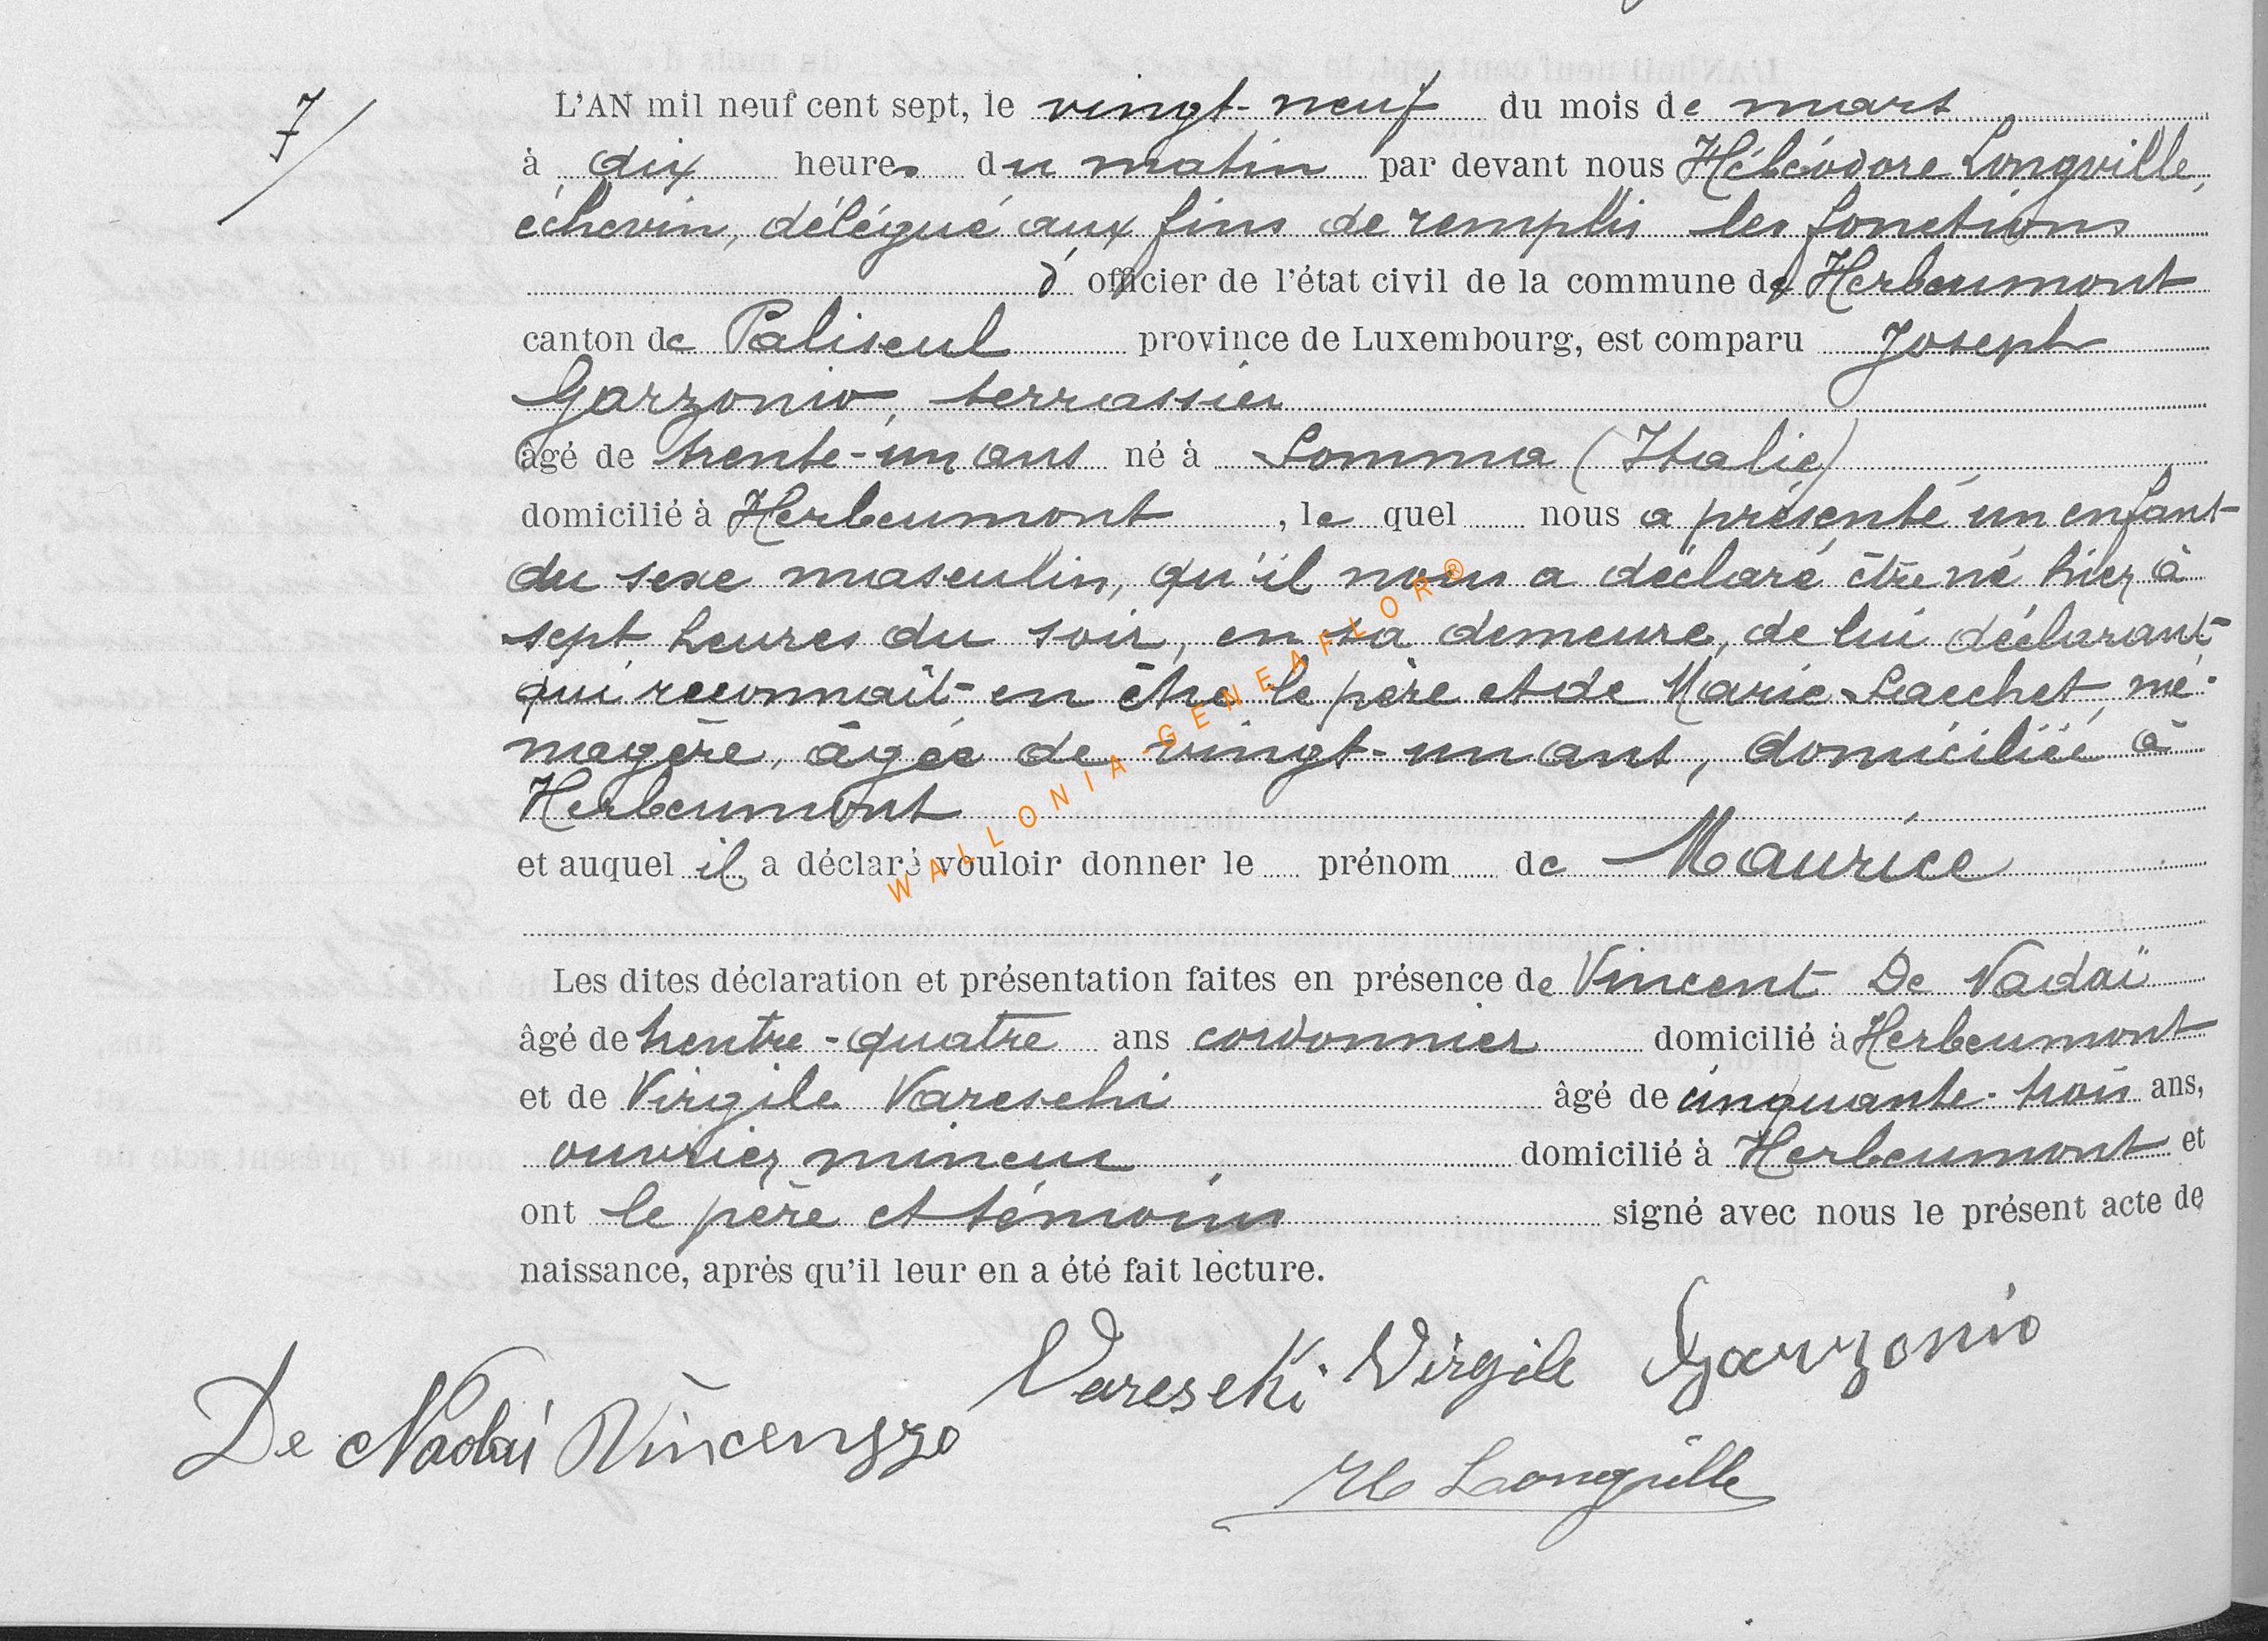 7/
L'AN mil neuf cent sept, le vingt-neuf du mois de mars
à dix heures du matin par devant nous Héléodore Longville,
échevin, délégué aux fins de remplir les fonctions
d' officier de l'état civil de la commune de Herbeumont
canton de Paliseul province de Luxembourg, est comparu Joseph
Garzonio, terrassier
âgé de trente-un ans né à Somma (Italie)
domicilié à Herbeumont , le quel nous a présenté un enfant
du sexe masculin, qu'il nous a déclaré être né hier, à
sept heures du soir, en sa demeure, de lui déclarant
qui reconnaît en être le père et de Marie Sacchet, mé-
nagère, âgée de vingt-un ans, domiciliée à
Herbeumont
et auquel il a déclaré vouloir donner le prénom de Maurice
Les dites déclaration et présentation faites en présence de Vincent De Nadaï
âgé de trentre-quatre ans cordonnier domicilié à Herbeumont
et de Virgile Vareschi âgé de cinquante-trois ans,
ouvrier mineur domicilié à Herbeumont et
ont le père et témoins signé avec nous le présent acte de
naissance, après qu'il leur en a été fait lecture.
De Nadai Vincenzzo Vareseki Virgile Garzonio
H Longville
WALLONIA-GENEAFLOR®